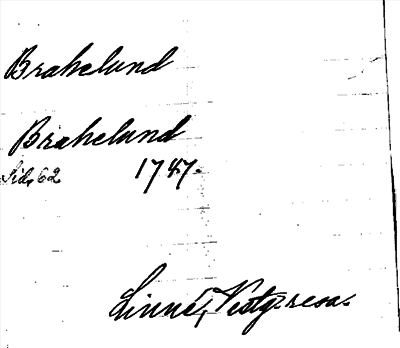 Brakelund
Brakelund
Sid. 62 1747.
Linné, Vestg. resa.